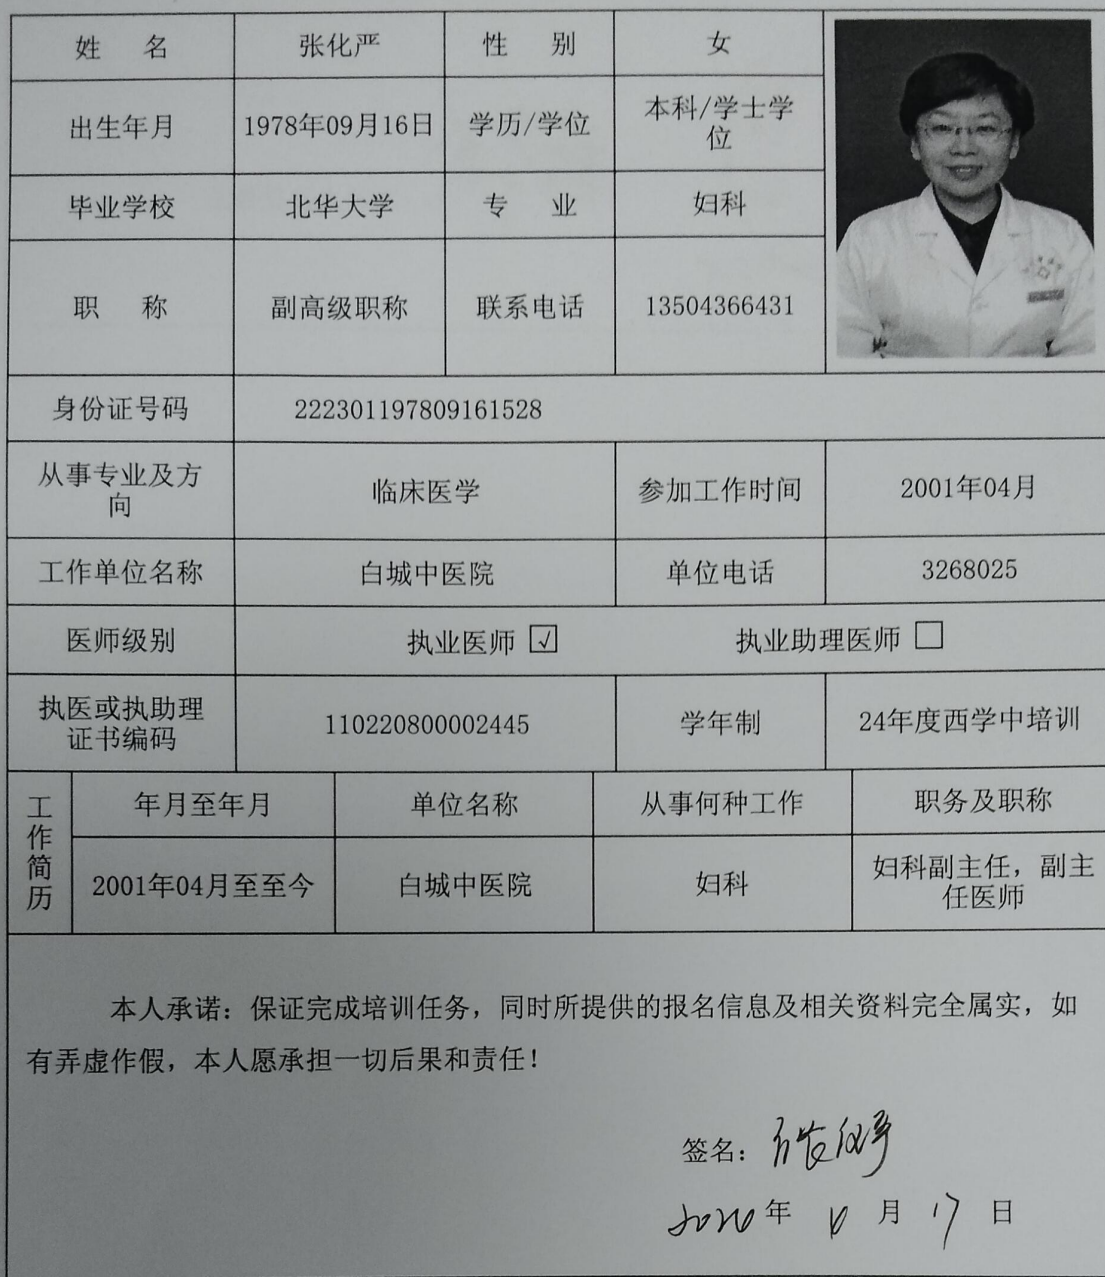 姓 名 张化严 性 别 女
出生年月 1978年09月16日 学历/学位 本科/学士学
位
毕业学校 北华大学 专 业 妇科
职 称 副高级职称 联系电话 13504366431
身份证号码 222301197809161528
从事专业及方
向 临床医学 参加工作时间 2001年04月
工作单位名称 白城中医院 单位电话 3268025
医师级别 执业医师 ☑ 执业助理医师 □
执医或执助理
证书编码 110220800002445 学年制 24年度西学中培训
工作简历 年月至年月 单位名称 从事何种工作 职务及职称
2001年04月至至今 白城中医院 妇科 妇科副主任，副主
任医师
本人承诺：保证完成培训任务，同时所提供的报名信息及相关资料完全属实，如
有弄虚作假，本人愿承担一切后果和责任！
签名：
年 月 17 日